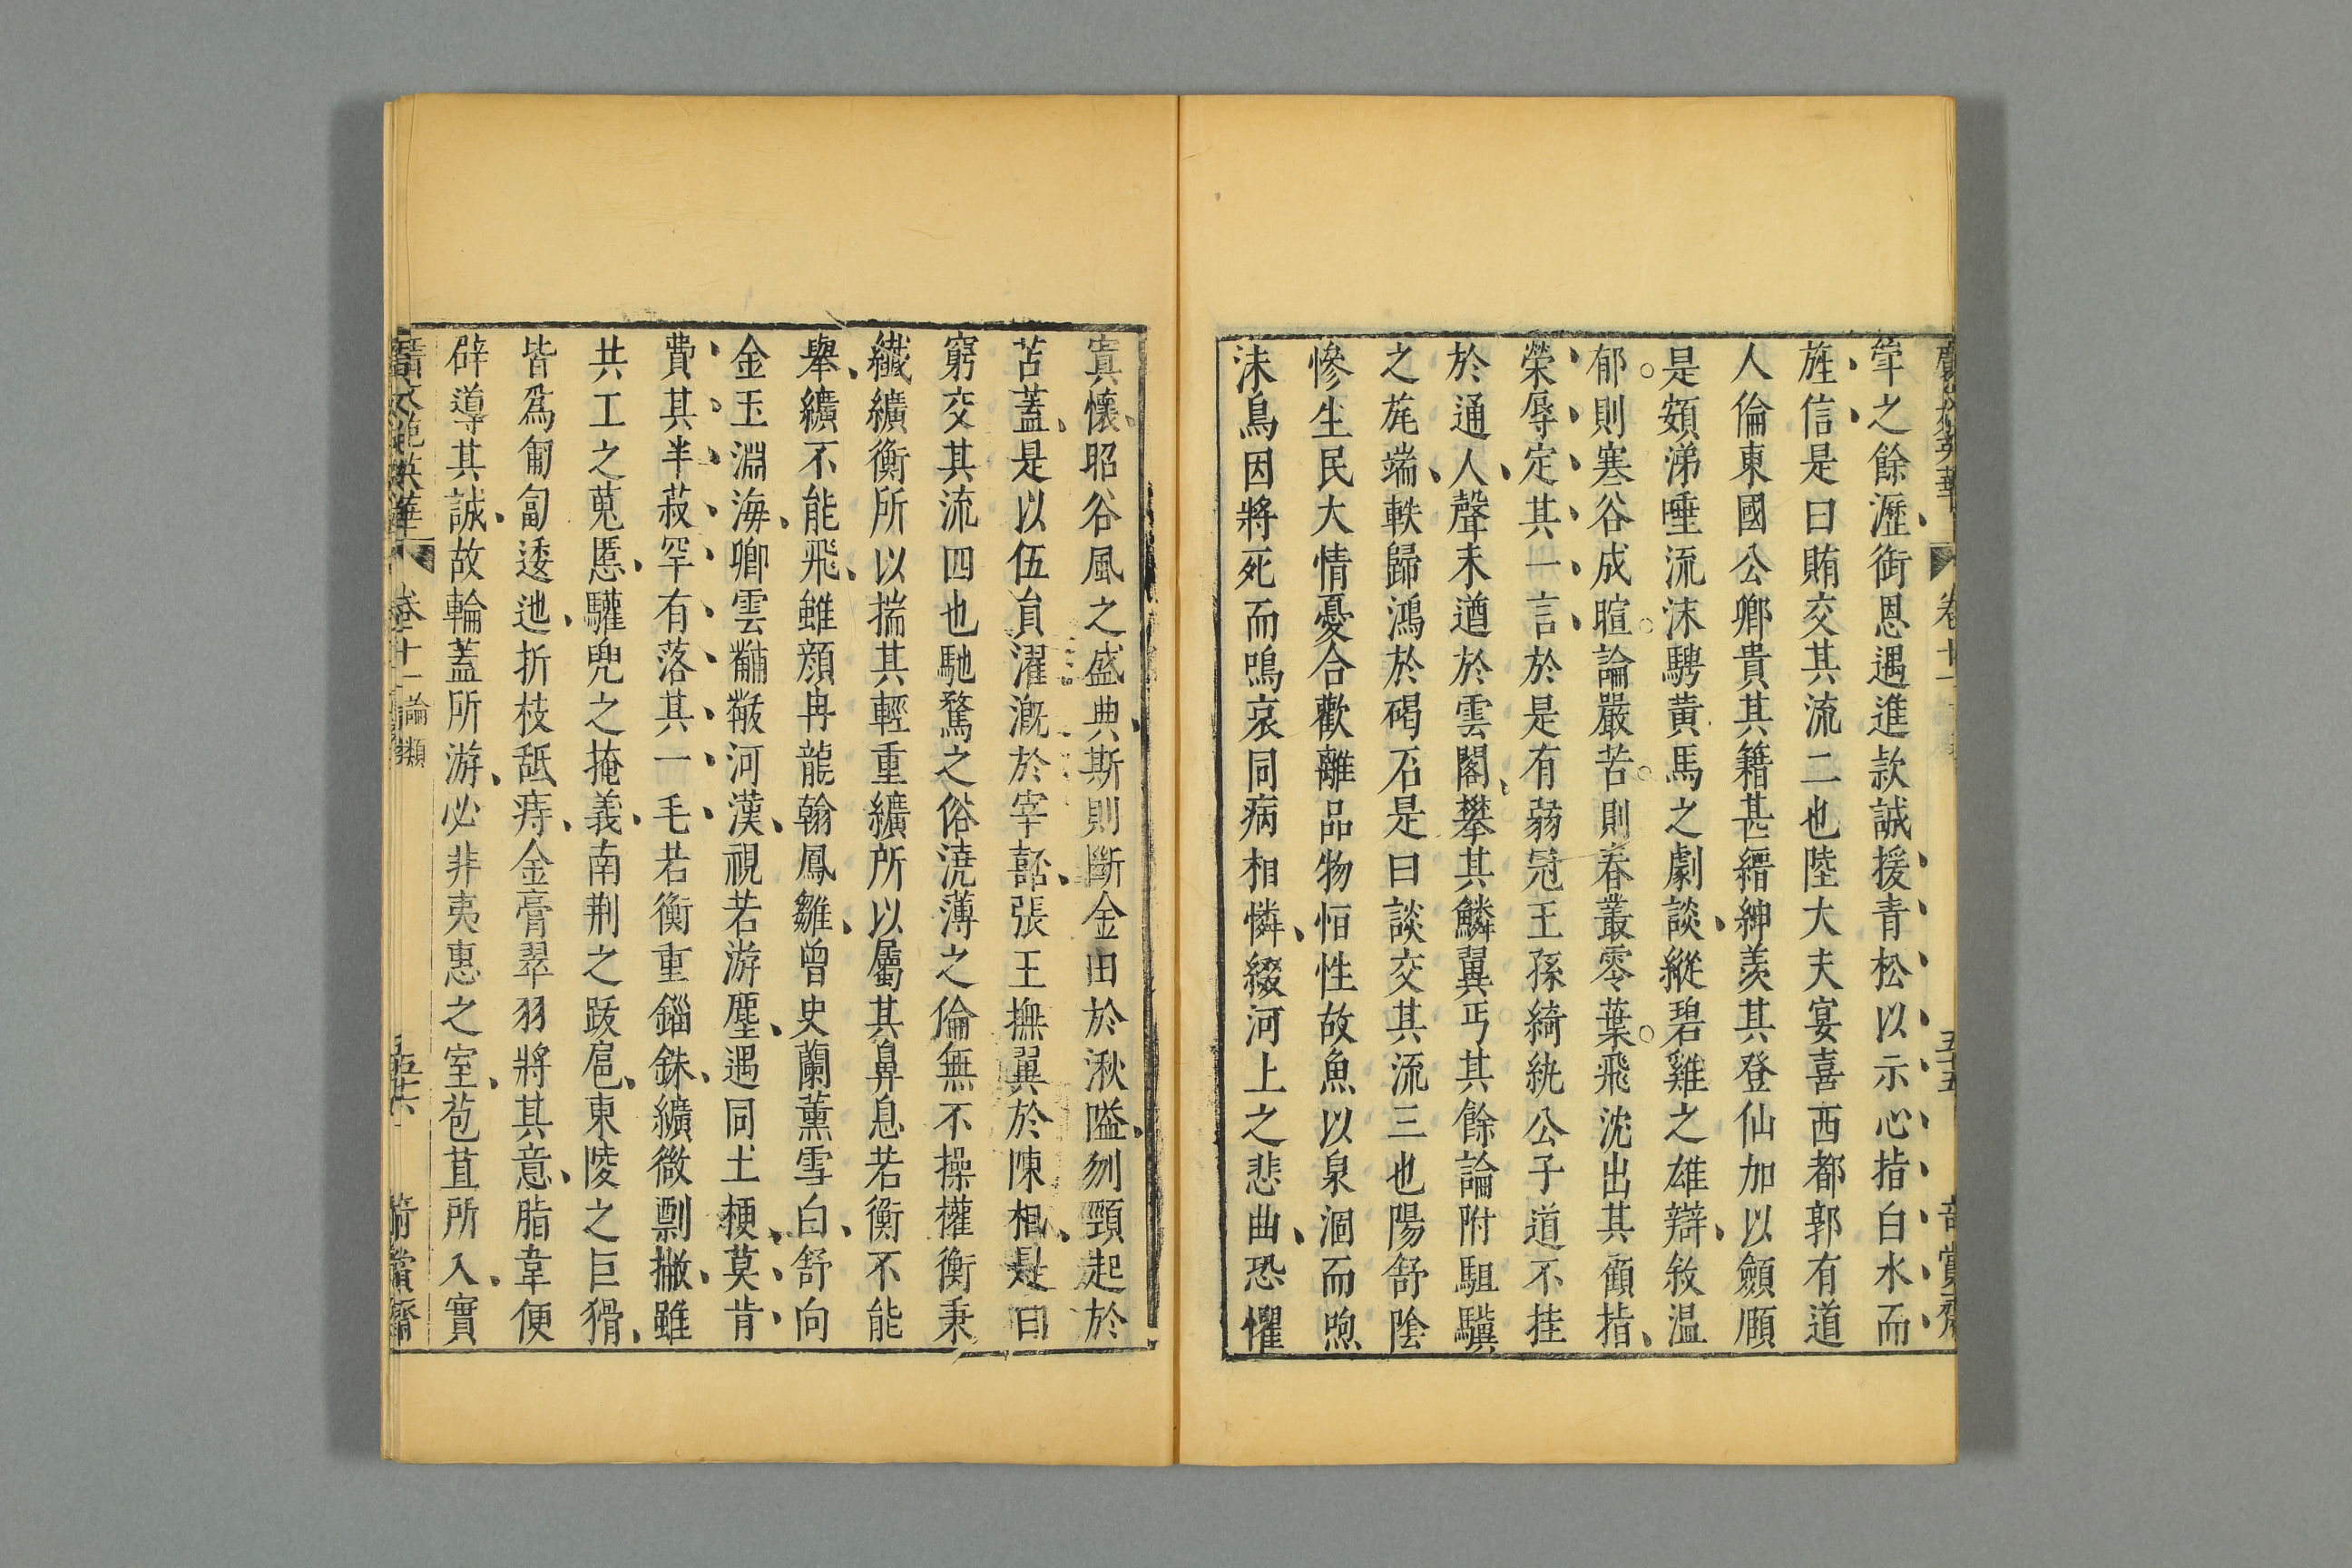 斝之餘瀝銜恩遇進款誠援青松以示心指白水而
旌信是曰賄交其流二也陸大夫宴喜西都郭有道
人倫東國公卿貴其籍甚縉紳羨其登仙加以顩頤
是頞涕唾流沫騁黄馬之劇談縱碧雞之雄辯敘温
郁則寒谷成暄論嚴苦則春叢零葉飛沈出其顧指
榮辱定其一言於是有弱冠王孫綺紈公子道不挂
於通人聲未遒於雲閣攀其鱗翼丐其餘論附駔驥
之旄端軼歸鴻於碣石是曰談交其流三也陽舒陰
慘生民大情憂合歡離品物恒性故魚以泉涸而喣
沫鳥因將死而鳴哀同病相憐綴河上之悲曲恐懼
寘懷昭谷風之盛典斯則斷金由於湫隘刎頸起於
苫蓋是以伍員濯溉於宰嚭張王撫翼於陳相是曰
窮交其流四也馳騖之俗澆薄之倫無不操權衡秉
纖纊衡所以揣其輕重纊所以屬其鼻息若衡不能
舉纊不能飛雖顔冉龍翰鳳雛曾史蘭薰雪白舒向
金玉淵海卿雲黼黻河漢視若游塵遇同土梗莫肯
費其半菽罕有落其一毛若衡重錙銖纊微剽撇雖
共工之蒐慝驩兜之掩義南荆之跋扈東陵之巨猾
皆爲匍匐逶迆折枝舐痔金膏翠羽將其意脂韋便
辟導其誠故輪蓋所游必非夷惠之室苞苴所入實
卷十一論類 五十六